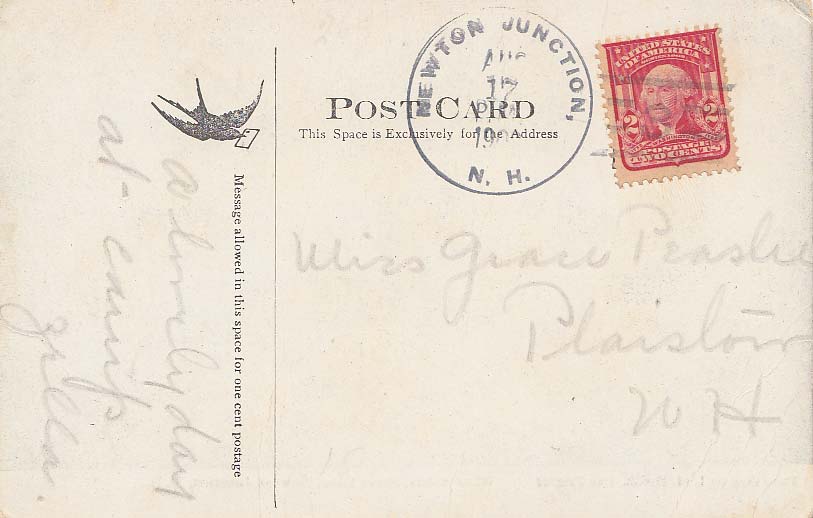 NEWTON JUNCTION,
AUG
17
N. H.
UNITED STATES
OF AMERICA
2 2
POSTAGE
TWO CENTS
POST CARD
This Space is Exclusively for the Address
Message allowed in this space for one cent postage
a lonely day
at camp
Zilla.
Miss Grace Peaslee
Plaistow
N H